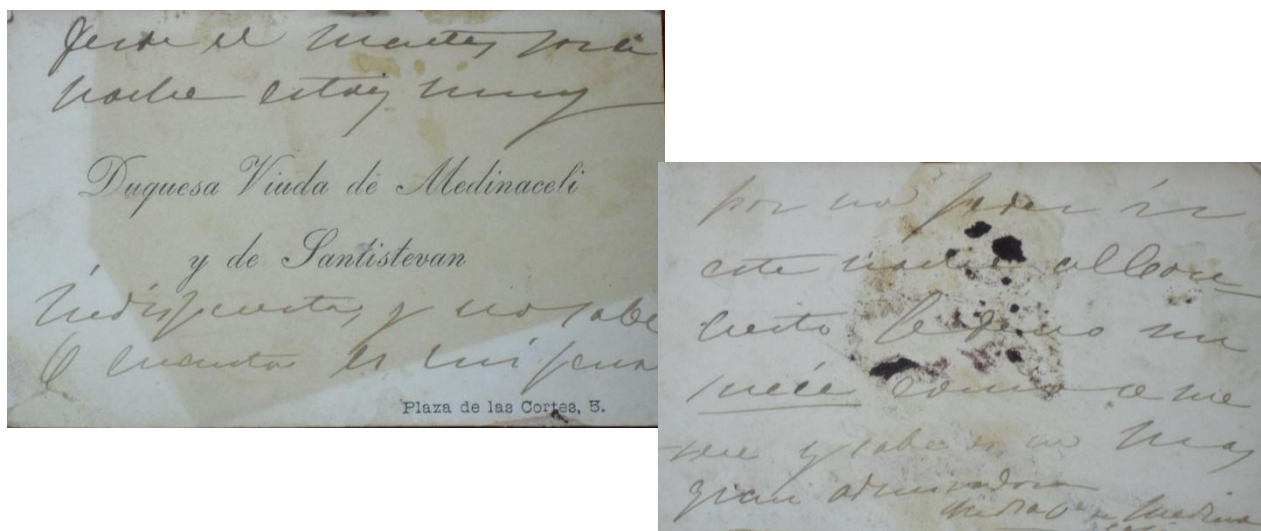 Desde el martes por la
noche estoy muy
Duquesa Viuda de Medinaceli
y de Santistevan
indispuesta, y no sabe
V cuanta es mi pena
Plaza de las Cortes, 5.
por no poder ir
este noche al Con
cierto Le deseo un
como se me
rece y sabe es su mas
gran admiradora